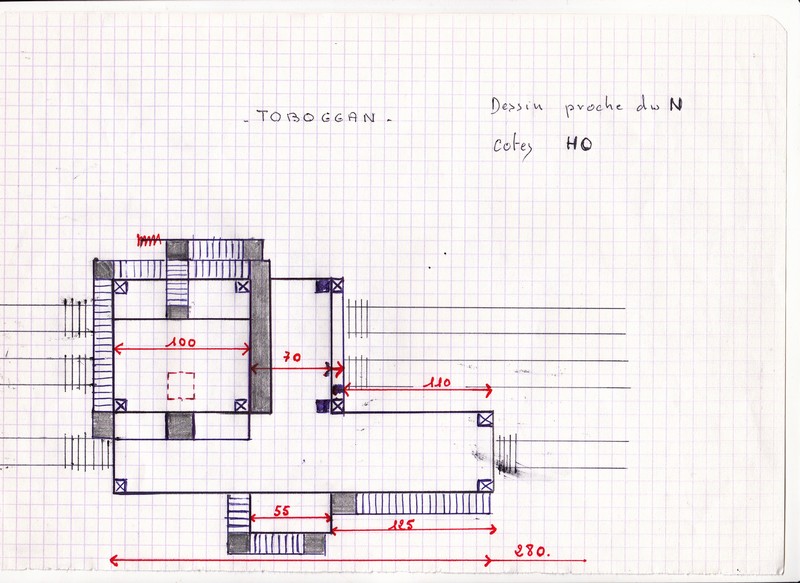 - TOBOGGAN -
Dessin proche du N
Cotes HO
100
70
110
55
125
280.